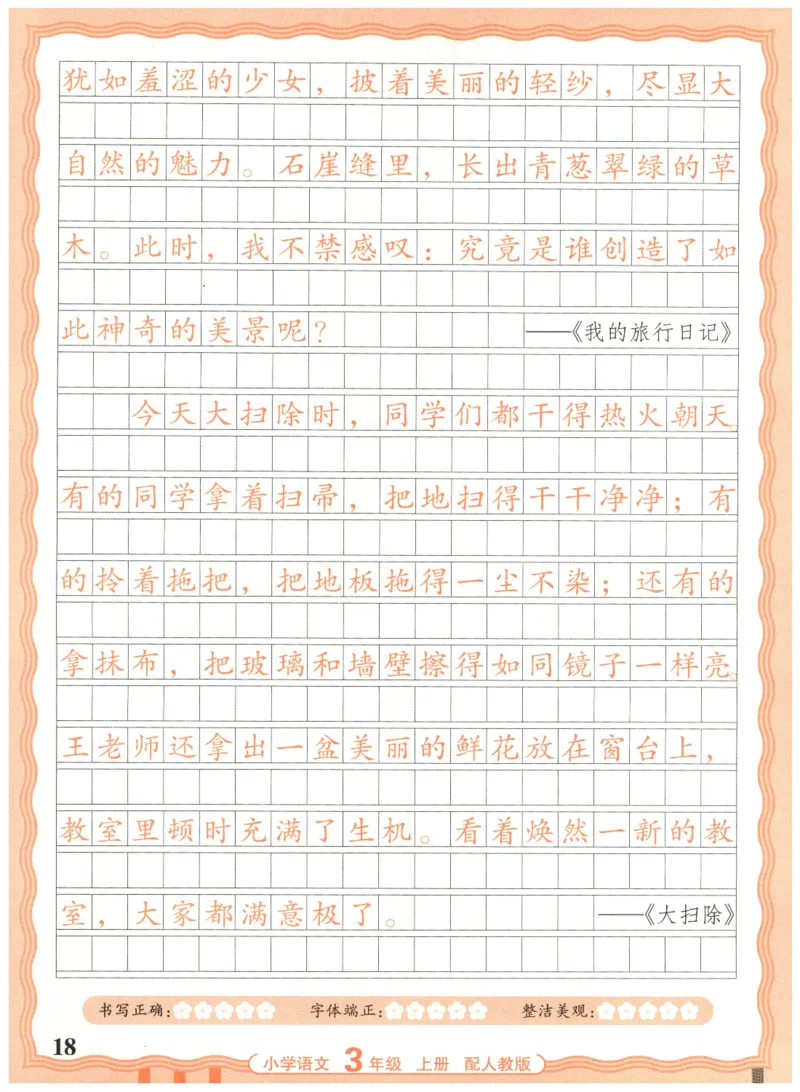 犹如羞涩的少女，披着美丽的轻纱，尽显大
自然的魅力。石崖缝里，长出青葱翠绿的草
木。此时，我不禁感叹：究竟是谁创造了如
此神奇的美景呢？ ——《我的旅行日记》
今天大扫除时，同学们都干得热火朝天。
有的同学拿着扫帚，把地扫得干干净净；有
的拎着拖把，把地板拖得一尘不染；还有的
拿抹布，把玻璃和墙壁擦得如同镜子一样亮。
王老师还拿出一盆美丽的鲜花放在窗台上，
教室里顿时充满了生机。看着焕然一新的教
室，大家都满意极了。 ——《大扫除》
书写正确： 字体端正： 整洁美观：
18
小学语文 3年级 上册 配人教版